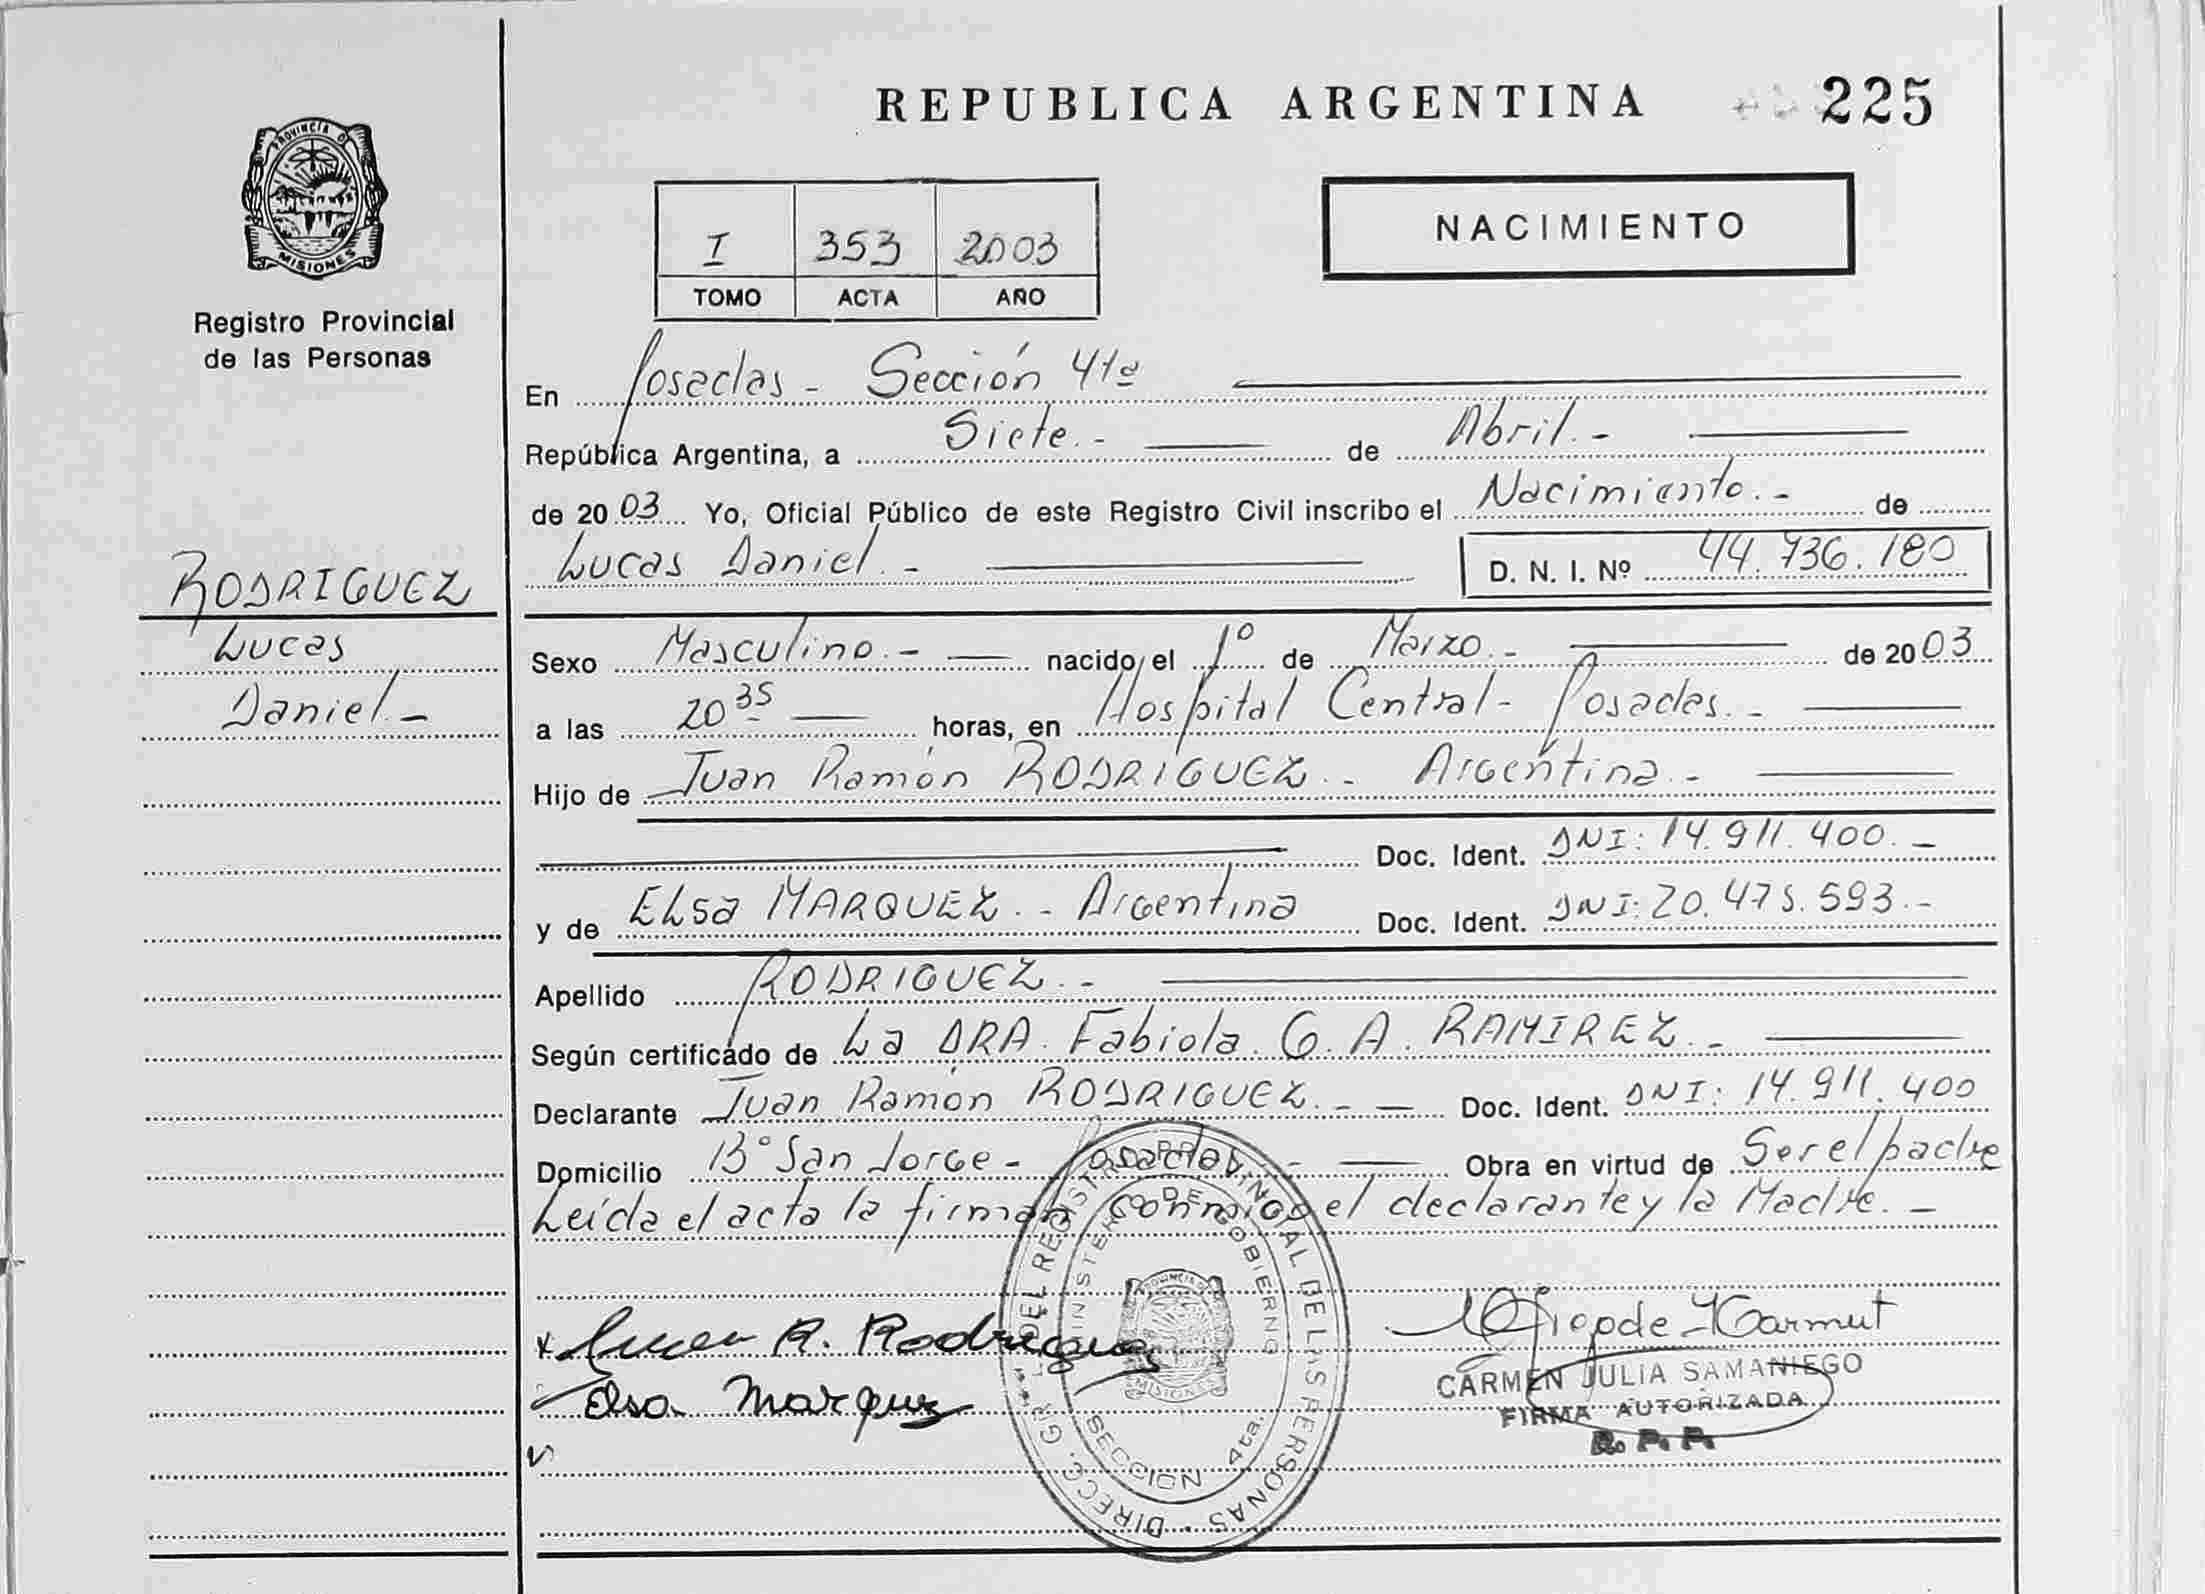 REPUBLICA ARGENTINA
225
PROVINCIA DE
MISIONES
Registro Provincial
de las Personas
NACIMIENTO
I 353 2003
TOMO ACTA AÑO
En Posadas - Sección 4ta
República Argentina, a Siete.- de Abril.-
de 2003 Yo, Oficial Público de este Registro Civil inscribo el Nacimiento.- de
Lucas Daniel.- D. N. I. Nº 44.736.180
RODRIGUEZ
Lucas
Daniel.-
Sexo Masculino.- nacido el 1º de Marzo.- de 2003
a las 20 35 horas, en Hospital Central- Posadas.-
Hijo de Juan Ramón RODRIGUEZ.- Argentina.-
Doc. Ident. DNI: 14.911.400.-
y de ELsa MARQUEZ.- Argentina Doc. Ident. DNI: 20.475.593.-
Apellido RODRIGUEZ.-
Según certificado de La DRA. Fabiola G. A. RAMIREZ.-
Declarante Juan Ramón RODRIGUEZ.- Doc. Ident. DNI: 14.911.400
Domicilio Bº San Jorge- Posadas.- Obra en virtud de Ser el padre
Leída el acta la firman conmigo el declarante y la Madre.-
DIRECC. GRAL. DEL REGISTRO PROVINCIAL DE LAS PERSONAS
MINISTERIO DE GOBIERNO
PROVINCIA DE
MISIONES
SECCION 4ta.
Juan R. Rodriguez
Elsa Marquez
CARMEN JULIA SAMANIEGO
FIRMA AUTORIZADA
R. P. P.